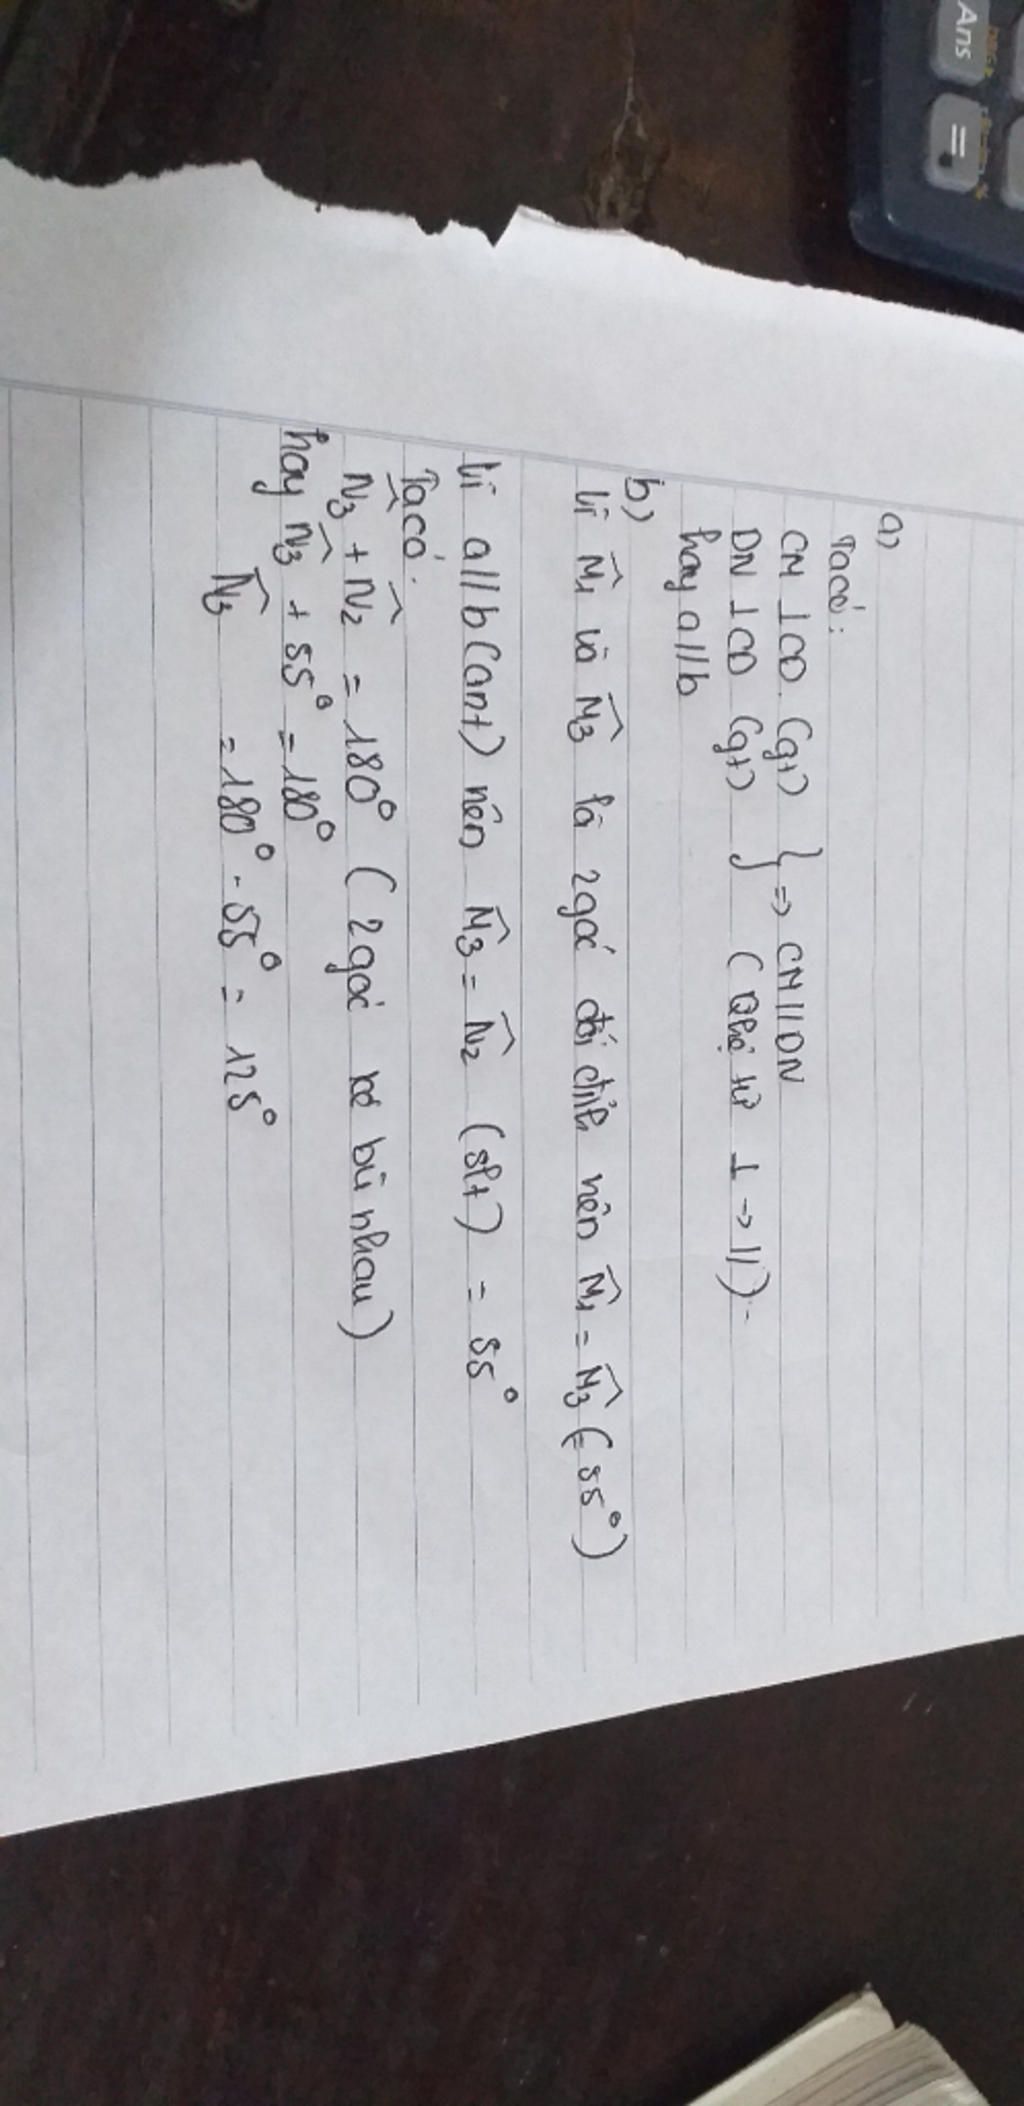 Ans
=
a)
Ta có:
CM ⊥ CD (gt) } => CM // DN
DN ⊥ CD (gt) } (Qhệ từ ⊥ -> //).
hay a // b
b)
Vì M̂₁ và M̂₃ là 2 góc đối đỉnh nên M̂₁ = M̂₃ (= 55°)
Vì a // b (cmt) nên M̂₃ = N̂₂ (slt) = 55°
Ta có:
N̂₃ + N̂₂ = 180° (2 góc kề bù nhau)
hay N̂₃ + 55° = 180°
N̂₃ = 180° - 55° = 125°